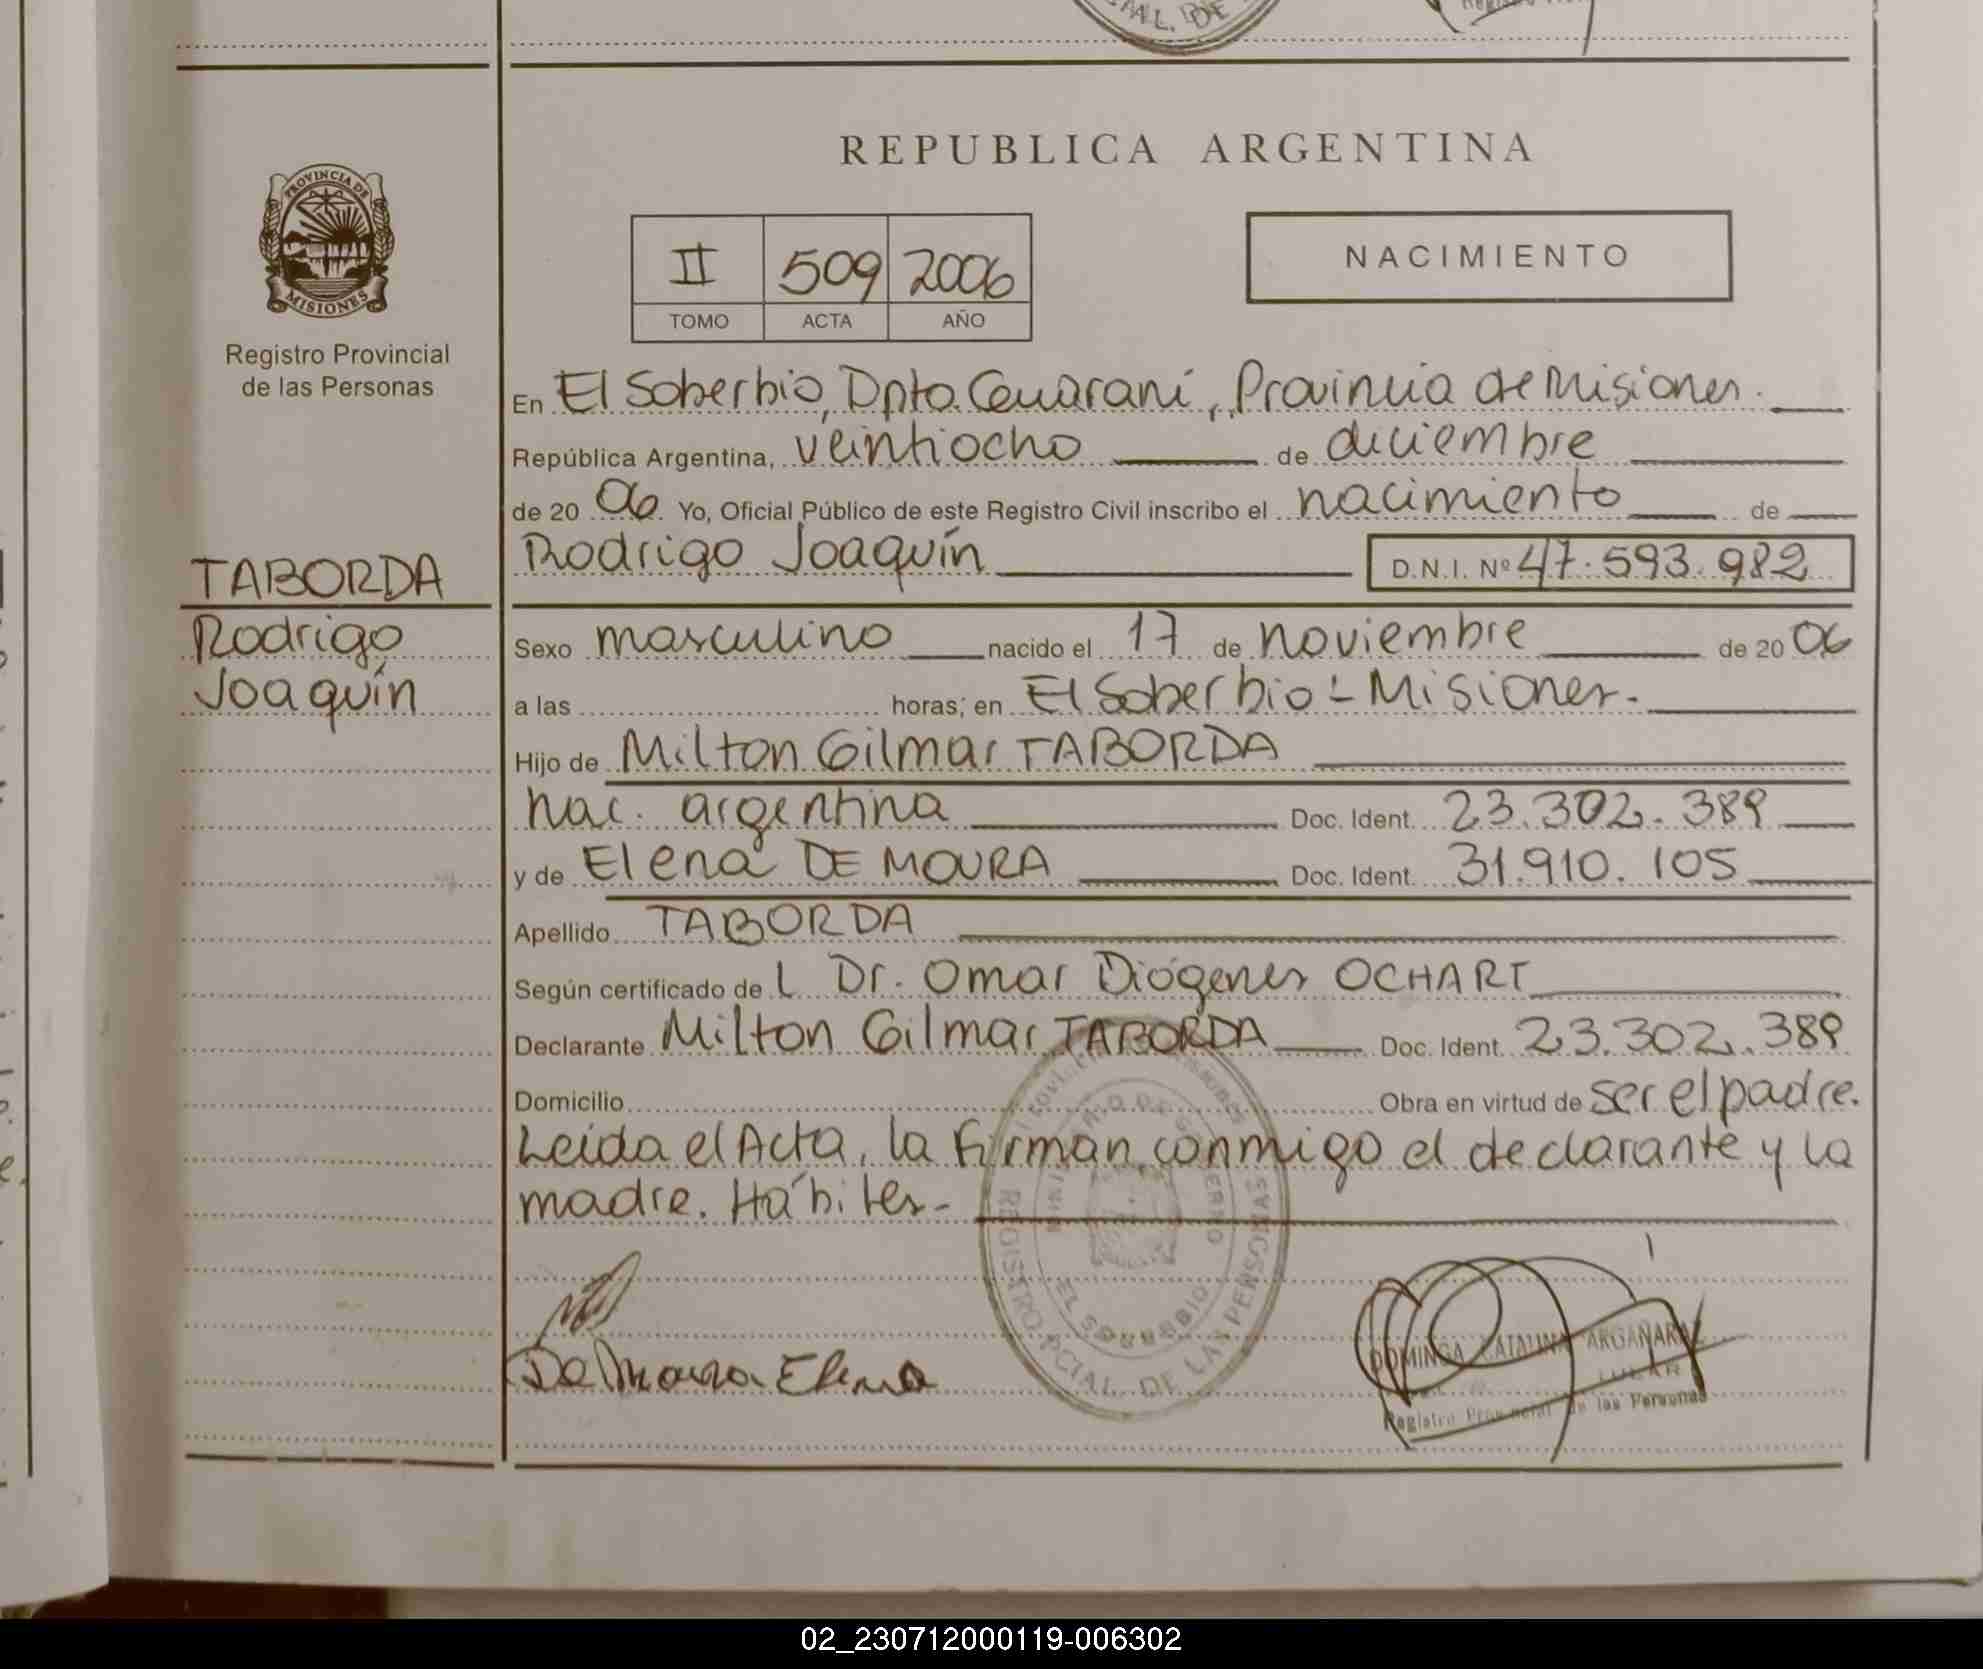 REPUBLICA ARGENTINA
PROVINCIA DE
MISIONES
Registro Provincial
de las Personas
II 509 2006
TOMO ACTA AÑO
NACIMIENTO
En El Soberbio, Dpto. Guaraní, Provincia de Misiones.
República Argentina, veintiocho de diciembre
de 20 06 Yo, Oficial Público de este Registro Civil inscribo el nacimiento de
Rodrigo Joaquín D.N.I. Nº 47.593.982
TABORDA
Rodrigo
Joaquín
Sexo masculino nacido el 17 de noviembre de 20 06
a las horas; en El Soberbio - Misiones.
Hijo de Milton Gilmar TABORDA
Nac. argentina Doc. Ident. 23.302.389
y de Elena DE MOURA Doc. Ident. 31.910.105
Apellido TABORDA
Según certificado de L Dr. Omar Diógenes OCHART
Declarante Milton Gilmar TABORDA Doc. Ident. 23.302.389
Domicilio Obra en virtud de ser el padre.
Leída el Acta, la firman conmigo el declarante y la
madre. Hábiles-
REGISTRO PCIAL. DE LAS PERSONAS
EL SOBERBIO
De Moura Elena
DOMINGA CATALINA ARGAÑARAZ
Registro Provincial de las Personas
02_230712000119-006302